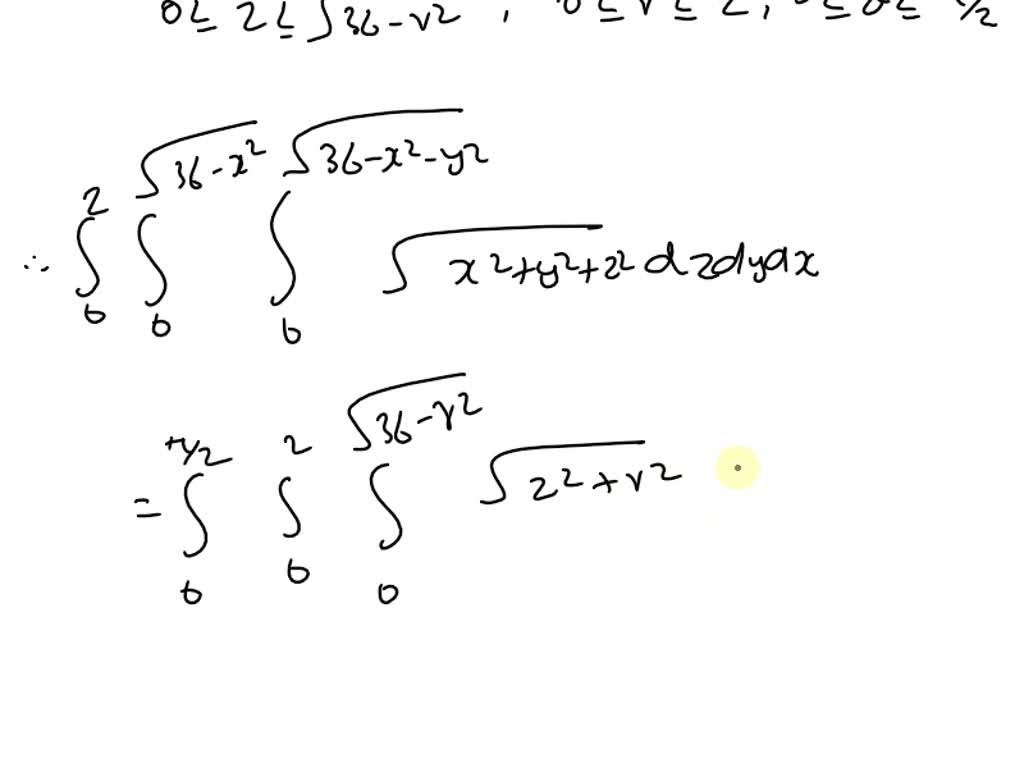 0 ≤ z ≤ √36-r² , 0 ≤ r ≤ 2, 0 ≤ θ ≤ π/2
∴ ∫₀² ∫₀^√36-x² ∫₀^√36-x²-y² √x²+y²+z² dzdydx
= ∫₀^π/2 ∫₀² ∫₀^√36-r² √z²+r²